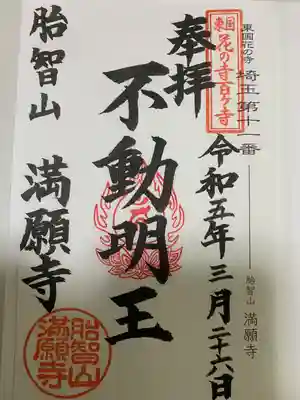 東国花の寺 埼玉第十一番
胎智山 満願寺
東国
花の寺百ヶ寺
奉拝
令和五年三月二十六日
不動明王
胎智山
満願寺
胎智山
満願寺